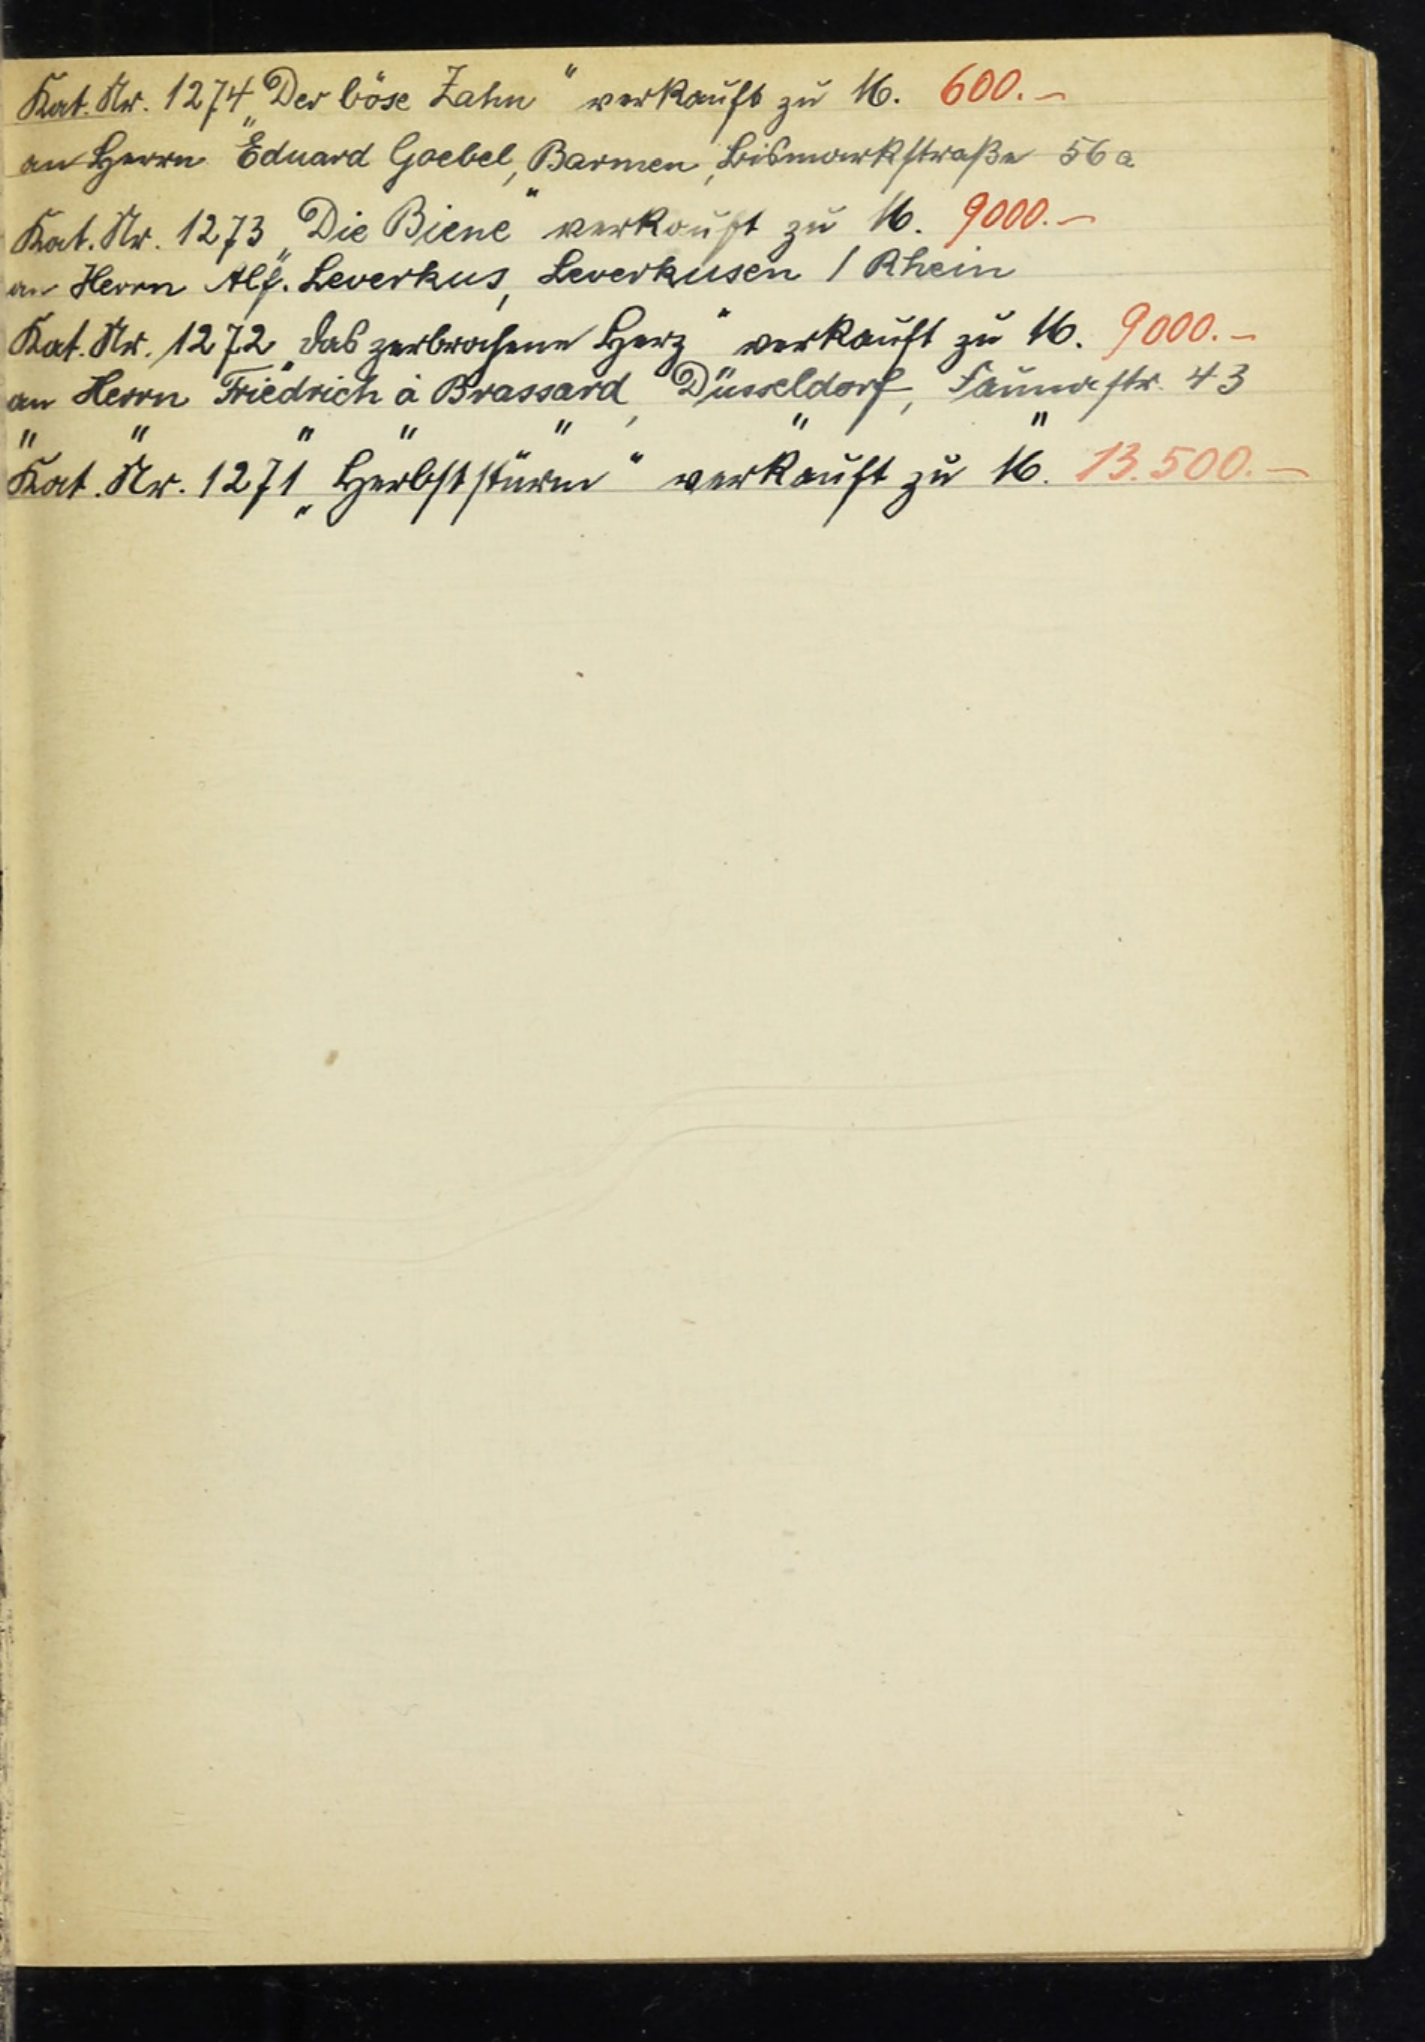 Kat. Nr. 1274 „Der böse Zahn“ verkauft zu M. 600.—
an Herrn Eduard Goebel, Barmen, Bismarkstraße 56a
Kat. Nr. 1273 „Die Biene“ verkauft zu M. 9000.—
an Herrn Alf. Leverkus, Leverkusen / Rhein
Kat. Nr. 1272 „Das zerbrochene Herz“ verkauft zu M. 9000.—
an Herrn Friedrich à Brassard, Düsseldorf, 43
" " " " " " "
Kat. Nr. 1271 „Herbststürme“ verkauft zu M. 13.500.—